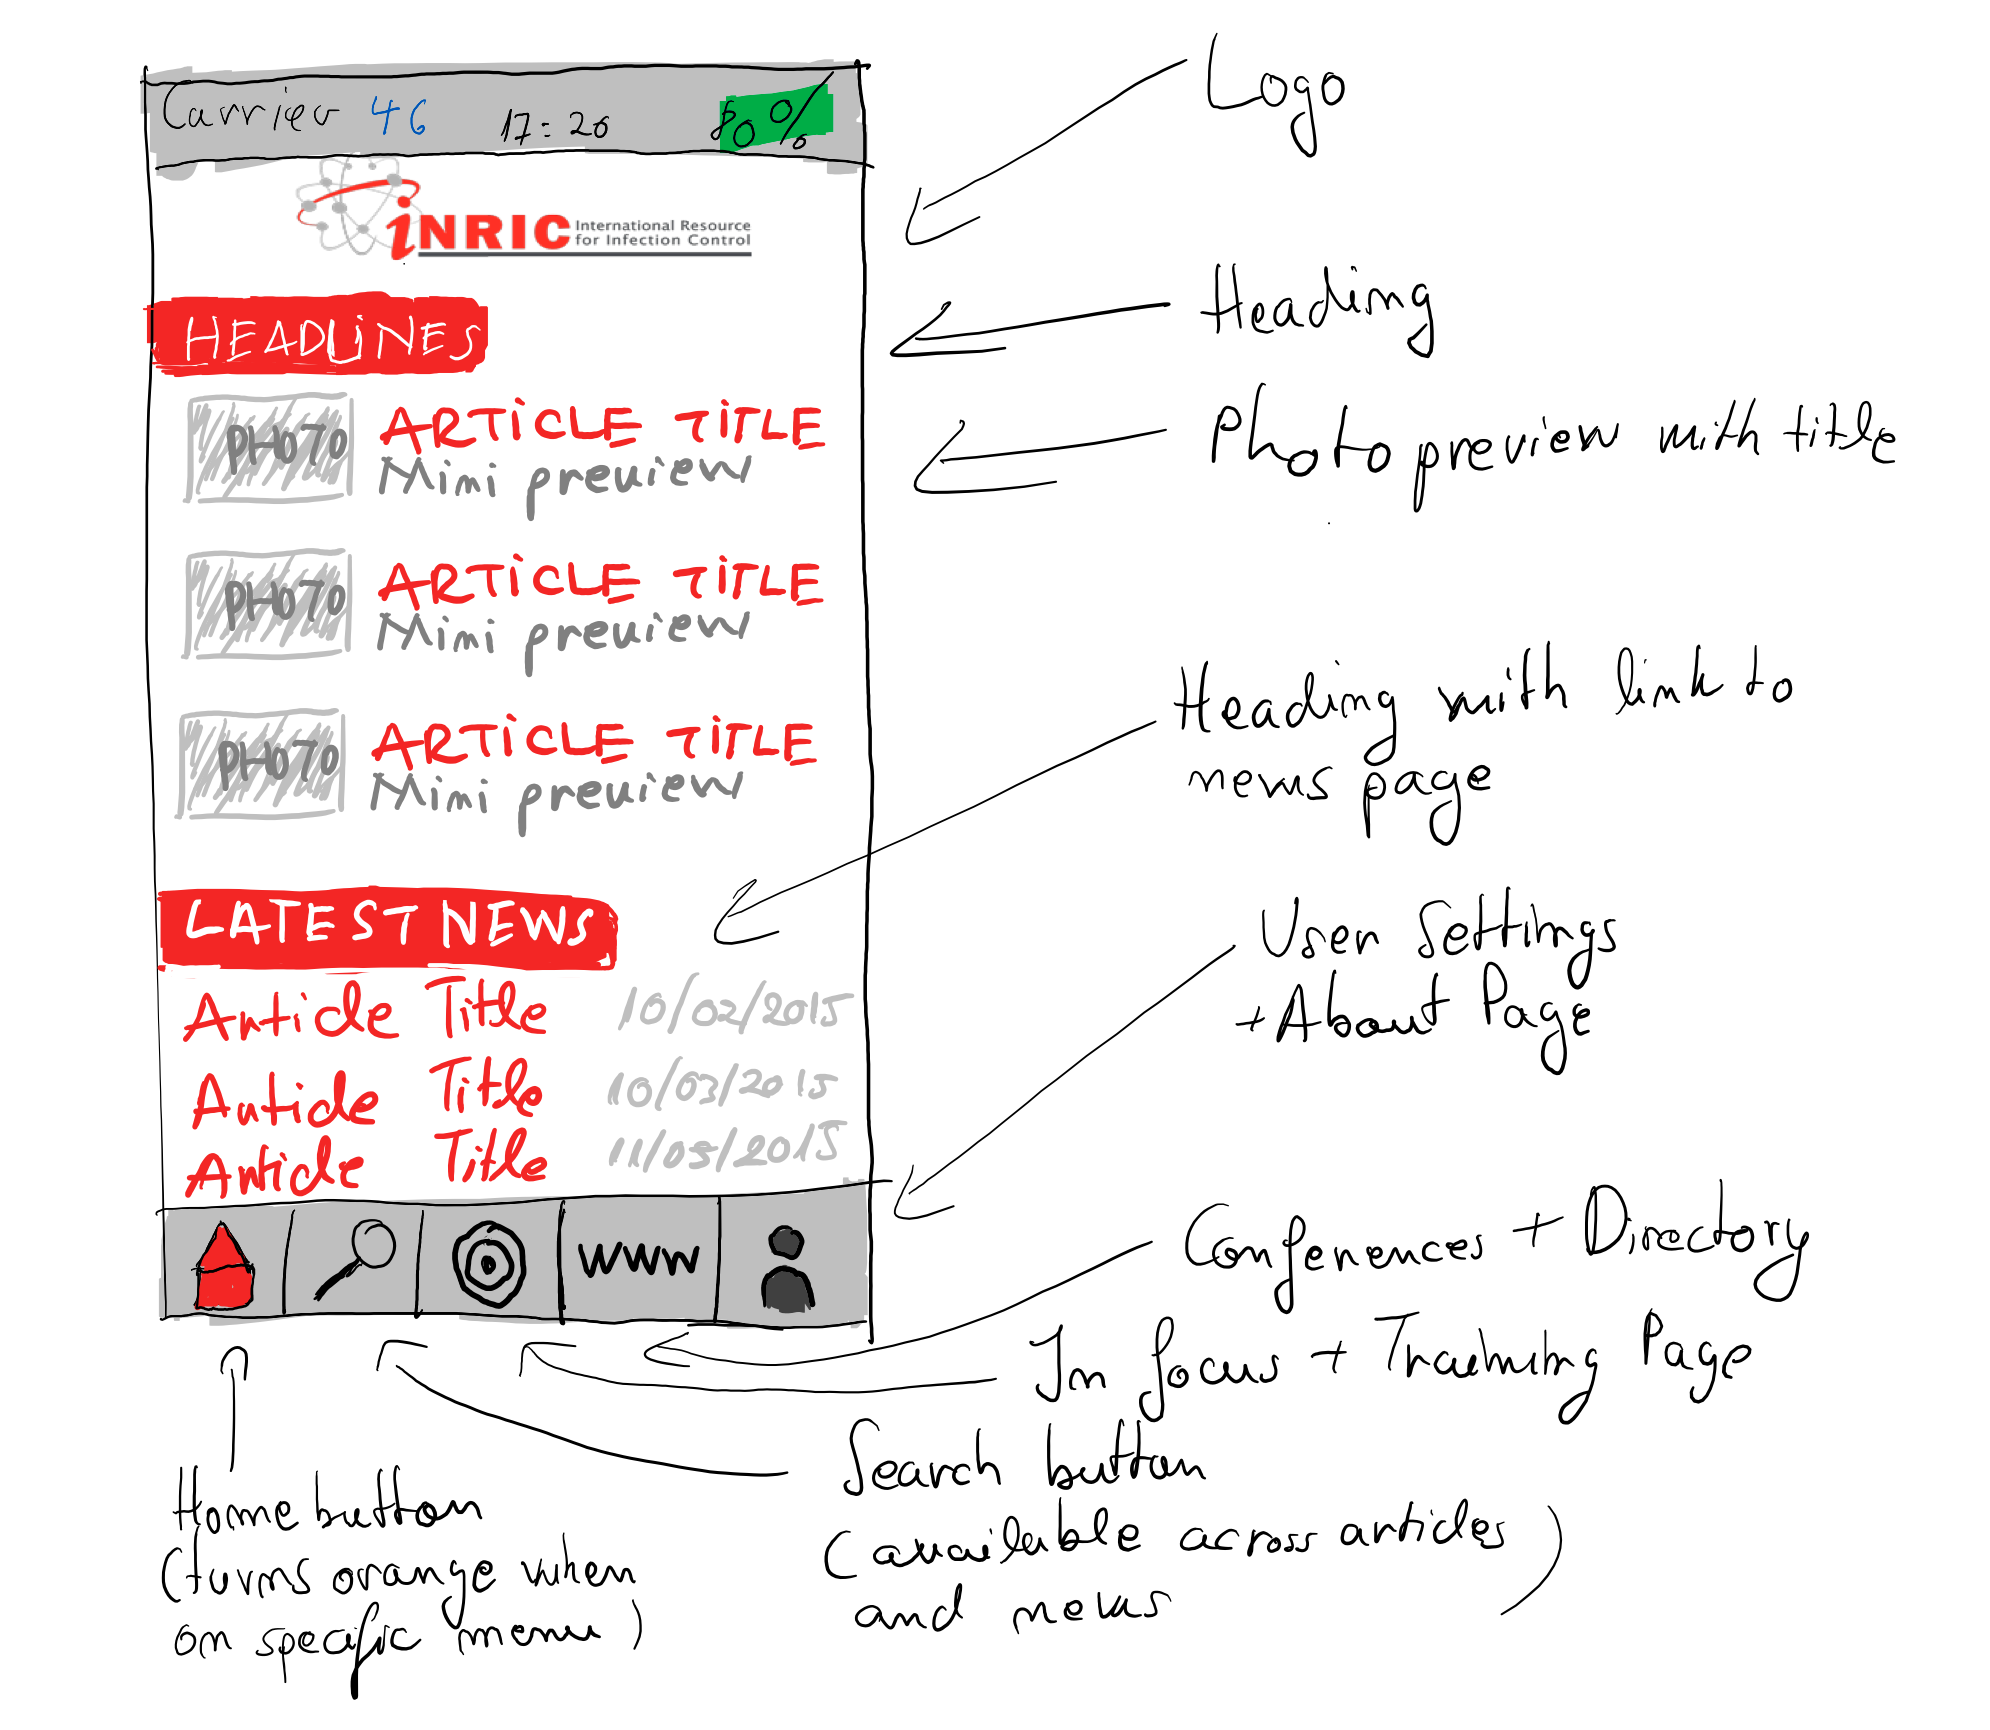 Carrier 4G 17:26 80%
iNRIC International Resource
for Infection Control
HEADLINES
PHOTO ARTiCLE TiTLE
Mini preview
PHOTO ARTiCLE TiTLE
Mini preview
PHOTO ARTiCLE TiTLE
Mini preview
LATEST NEWS
Article Title 10/02/2015
Article Title 10/03/2015
Article Title 11/03/2015
WWW
Logo
Heading
Photo preview with title
Heading with link to
news page
User Settings
+ About Page
Conferences + Directory
In focus + Training Page
Search button
(available across articles
and news)
Home button
(turns orange when
on specific menu)